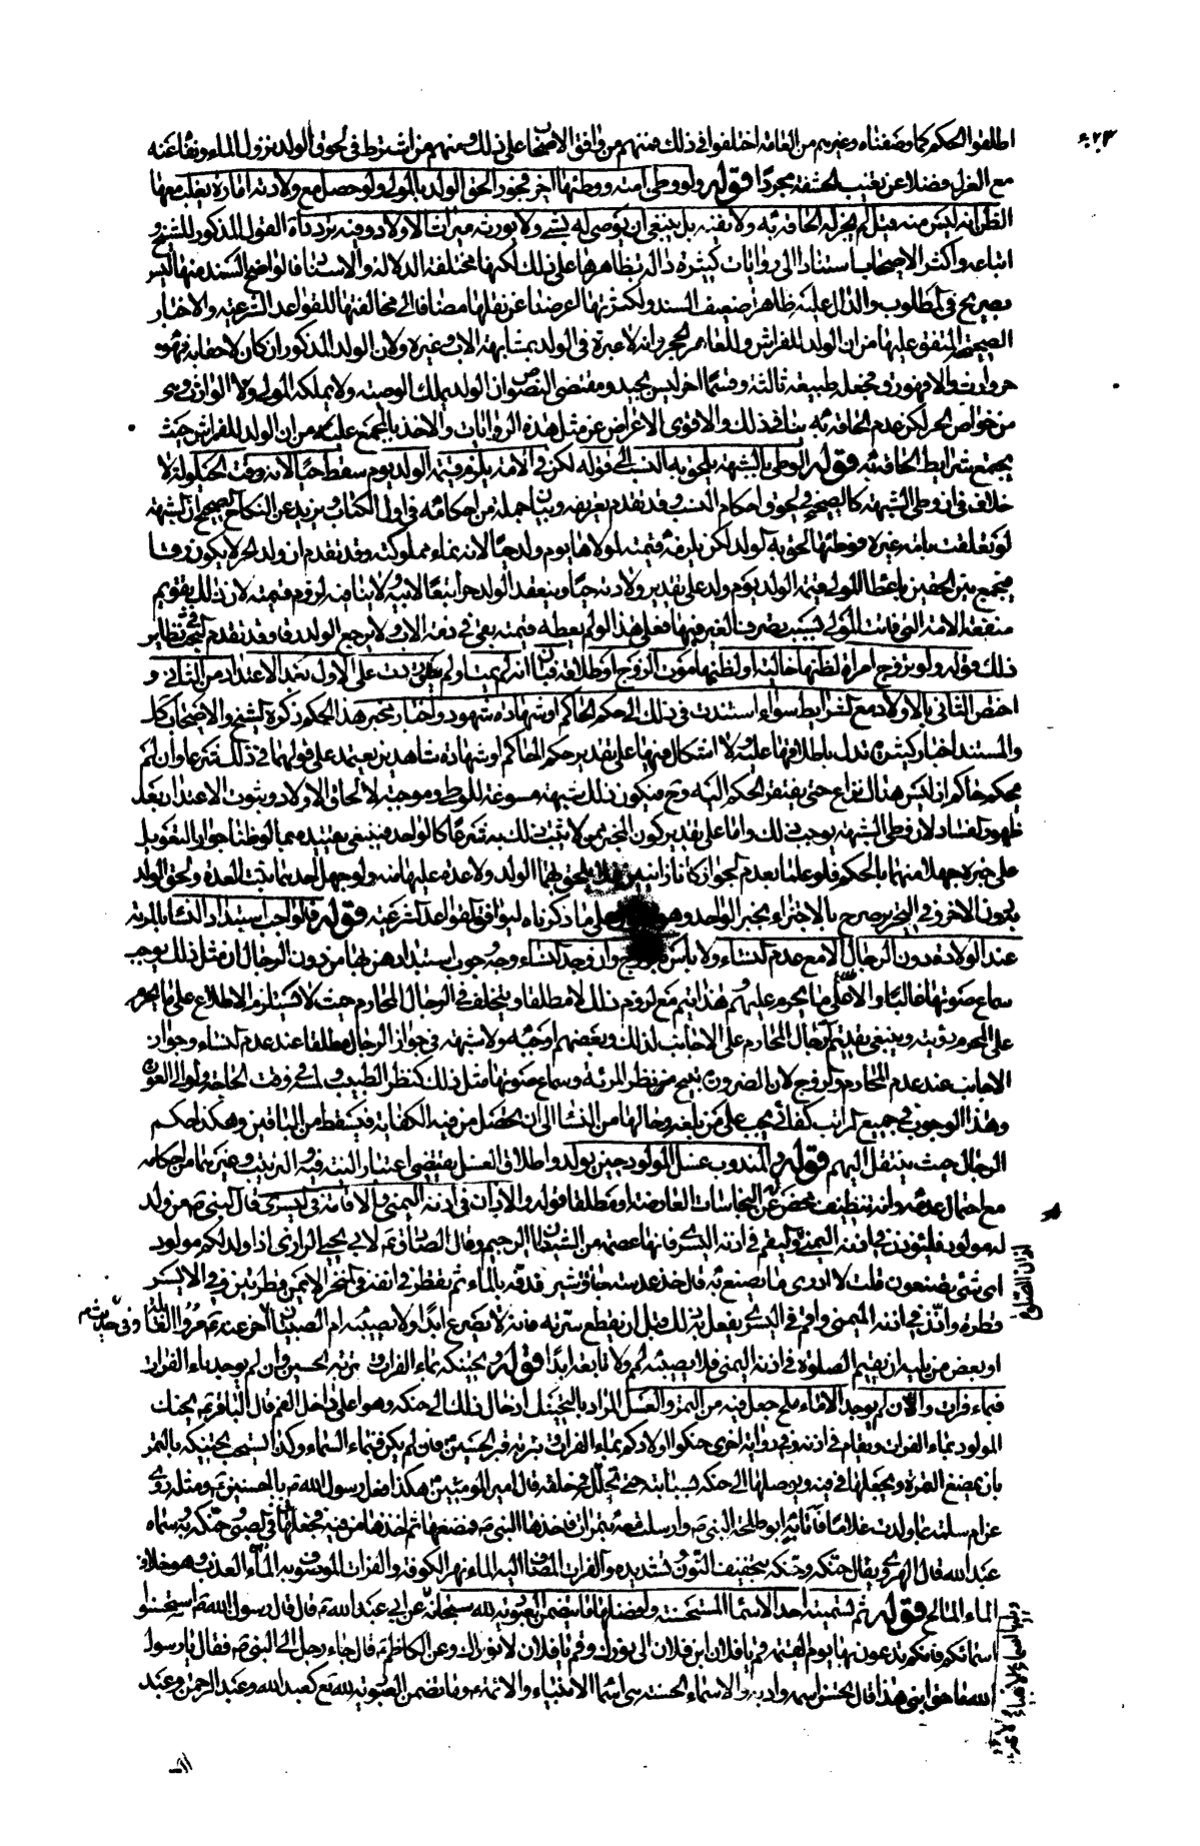 اطلقوا الحكم كما وصفناه وغيرهم من العامة اختلفوا في ذلك فمنهم من وافق الاصحاب على ذلك ومنهم من اشترط في لحوق الولد نزول الماء ونفاه عنه
مع العزل فضلا عن تغيب الحشفة مجردا قوله ولو وطئ امته ووطئها اخر فجورا الحق الولد بالمولى ولو حصل مع ولادته امارة يغلب معها
الظن انه ليس منه قيل لم يجز له الحاقه به ولا نفيه بل ينبغي ان يوصي له بشيء ولا يورثه ميراث الاولاد وفيه تردد هذا القول المذكور للشيخ و
اتباعه واكثر الاصحاب استنادا الى روايات كثيرة دالة بظاهرها على ذلك لكنها مختلفة الدلالة والاسناد فالواضح السند منها ليس
بصريح في المطلوب والدال عليه ظاهرا ضعيف السند ولكثرتها اعرضنا عن نقلها مضافا الى مخالفتها للقواعد الشرعية والاخبار
الصحيحة المتفق عليها من ان الولد للفراش وللعاهر الحجر وانه لا عبرة في الولد بمشابهة الاب وغيره ولان الولد المذكور ان كان لاحقا به فهو
حر وارث والا فهو رق وجعله طبيعة ثالثة وقسما اخر ليس بجيد ومقتضى النصوص ان الولد يملك الوصية ولا يملكه المولى ولا الوارث وهو
من خواص الحر لكن عدم الحاقه به ينافي ذلك والاقوى الاعراض عن مثل هذه الروايات والاخذ بالمجمع عليه من ان الولد للفراش حيث
يجتمع شرايط الحاقه به قوله الوطي بالشبهة يلحق به النسب الى قوله لكن في الامة يلزم قيمة الولد يوم سقط حيا لانه وقت الحيلولة لا
خلاف في ان وطي الشبهة كالصحيح في لحوق احكام النسب وقد تقدم تعريفه وبيان جملة من احكامه في اول الكتاب ويزيد عن النكاح الصحيح ان الشبهة
لو تعلقت بامة غيره فوطئها لحق به الولد لكن يلزمه قيمته لمولاها يوم ولد حيا لانه نماء مملوكته وقد تقدم ان ولد الحر لا يكون رقا
فيجمع بين الحقين باعطاء المولى قيمة الولد يوم ولد على تقدير ولادته حيا وينعقد الولد حرا تبعا لابيه ولا ينافيه لزوم قيمته لان ذلك تقويم
منفعة الامة التي فاتت المولى بسبب تصرف الغير فيها فعلى هذا لو لم يعطه قيمته بقي في ذمة الاب ولا يرجع الولد رقا وقد تقدم البحث في نظاير
ذلك قوله ولو تزوج امراة لظنها خالية او لظنها موت الزوج او طلاقه فبان انه لم يمت ولم يطلق ردت على الاول بعد الاعتداد من الثاني و
اختص الثاني بالاولاد مع الشرايط سواء استندت في ذلك الى حكم الحاكم او شهادة شهود او اخبار مخبر هذا الحكم ذكره الشيخ والاصحاب كذلك
والمستند اخبار كثيرة تدل باطلاقها عليه ولا اشكال فيها على تقدير حكم الحاكم او شهادة شاهدين يعتمد على قولهما في ذلك شرعا وان لم
يحكم حاكم اذ ليس هناك نزاع حتى يفتقر الحكم اليه وح فيكون ذلك شبهة مسوغة للوطي وموجبة لالحاق الاولاد وثبوت الاعتداد بعد
ظهور الفساد لان وطي الشبهة يوجب ذلك واما على تقدير كون المخبر ممن لا يثبت ذلك به شرعا كالواحد فينبغي تقييده بما لو ظنا جواز التعويل
على خبره جهلا منهما بالحكم فلو علما بعدم الجواز كانا زانيين فلا يلحق بهما الولد ولا عدة عليها منه ولو جهل احدهما ثبت العدة ولحق الولد
به دون الاخر وفي التحرير صرح بالاجتزاء بخبر الواحد وهو على ما ذكرناه ليوافق القواعد الشرعية قوله فالواجب استبداد النساء بالمرءة
عند الولادة دون الرجال الا مع عدم النساء ولا باس بالزوج وان وجد النساء وجه وجوب استبدادهن بها من دون الرجال ان مثل ذلك يوجب
سماع صوتها غالبا والاطلاع على ما يحرم عليهم هذا يتم مع لزوم ذلك لا مطلقا ويتخلف في الرجال المحارم حيث لا يستلزم الاطلاع على ما يحرم
على المحرم رؤيته وينبغي تقديم الرجال المحارم على الاجانب لذلك وبعضهم اوجبه ولا شبهة في جواز الرجال مطلقا عند عدم النساء وجواز
الاجانب عند عدم المحارم والزوج لان الضرورة تبيح من نظر المرءة وسماع صوتها مثل ذلك كنظر الطبيب ولمسه في وقت الحاجة
وهذا الوجوب في جميع المراتب كفائي يجب على كل من بلغه وحالها من النساء الى ان يحصل من فيه الكفاية فيسقط من الباقين وهكذا حكم
الرجال حيث ينتقل اليهم قوله والمندوب غسل المولود حين يولد واطلاق الغسل يقتضي اعتبار النية فيه والترتيب وغيرهما من احكامه
مع احتمال عدمه وانه تنظيف محض من النجاسات العارضة او مطلقا قوله والاذان في اذنه اليمنى والاقامة في اليسرى قال النبي ص من ولد
له مولود فليؤذن في اذنه اليمنى وليقم في اذنه اليسرى فانها عصمة من الشيطان الرجيم وقال الصادق ع لابي يحيى الرازي اذا ولد لكم مولود
اي شيء تصنعون قلت لا ادري ما يصنع به قال خذ عدسة جاوشير فدقه بالماء ثم تقطر في انفه في المنخر الايمن قطرتين وفي الايسر
قطرة واذن في اذنه اليمنى واقم في اليسرى يفعل به ذلك قبل ان يقطع سرته فانه لا يصرع ابدا ولا تصيبه ام الصبيان وعنه ع مروا القابلة وفي حديثهم
او بعض من يليه ان يقيم الصلوة في اذنه اليمنى فلا يصيبه لمم ولا تابعة ابدا قوله وتحنيكه بماء الفرات وتربة الحسين وان لم يوجد ماء الفرات
فماء فرات وان لم يوجد الا ماء ملح جعل فيه من التمر والعسل المراد بالتحنيك ادخال ذلك الى حنكه وهو اعلى داخل الفم قال الباقر ع يحنك
المولود بماء الفرات ويقام في اذنه وفي رواية اخرى حنكوا اولادكم بماء الفرات وبتربة قبر الحسين ع فان لم يكن فبماء السماء وكذا يستحب تحنيكه بالتمر
بان يمضغ التمرة ويجعلها في فيه ويوصلها الى حنكه بسبابته حتى يتحلل في حلقه قال امير المؤمنين ع هكذا فعل رسول الله ص بالحسنين ع ومثله روي
عن ام سلمة لما ولدت غلاما فاتى به ابو طلحة النبي ص وارسلت معه بتمرات فاخذها النبي ص فمضغها ثم اخذها من فيه فجعلها في في الصبي وحنكه به وسماه
عبد الله قال الهروي يقال حنكه وحنكه بتخفيف النون وتشديده والفرات المضاف اليه الماء نهر الكوفة والفرات الموصوف به الماء العذب وهو خلاف
الماء المالح قوله ثم تسميته احد الاسماء المستحسنة وافضلها ما يتضمن العبودية لله سبحانه عن ابي عبد الله ع قال قال رسول الله ص استحسنوا
اسمائكم فانكم تدعون بها يوم القيمة قم يا فلان ابن فلان الى نورك وقم يا فلان لا نور لك وعن الكاظم ع قال جاء رجل الى النبي ص فقال يا رسول
الله ما حق ابني هذا قال تحسن اسمه وادبه والاسماء الحسنة هي اسماء الانبياء والائمة ع وما تضمن العبودية لله تع كعبد الله وعبد الرحمن وعبد